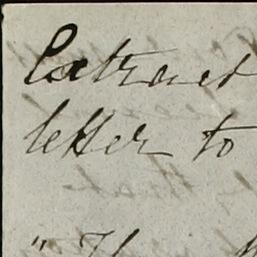 Extract
letter to
"